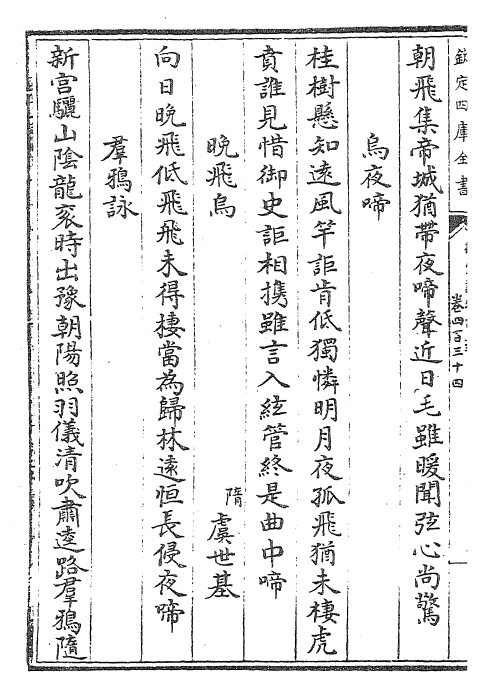 欽定四庫全書
卷四百三十四
朝飛集帝城猶帶夜啼聲近日毛雖暖聞弦心尚驚
烏夜啼
桂樹懸知遠風竿詎肯低獨憐明月夜孤飛猶未棲虎
賁誰見惜御史詎相携雖言入絃管終是曲中啼
晚飛烏
隋 虞世基
向日晚飛低飛飛未得棲當為歸林遠恒長侵夜啼
羣鴉詠
新宫驪山陰龍衮時出豫朝陽照羽儀清吹肅逵路羣鴉隨